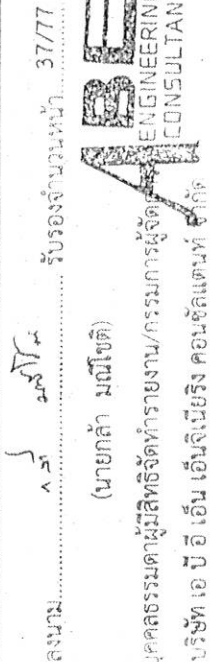 ลงนาม.................... รับรองจำนวนหน้า 37/77
(นายกล้า มณีโชติ)
บุคคลธรรมดาผู้มีสิทธิจัดทำรายงาน/กรรมการผู้จัด
บริษัท เอ บี อี เอ็น เอ็นจิเนียริง คอนซัลแตนท์ จำกัด
ABE
ENGINEERIN
CONSULTAN